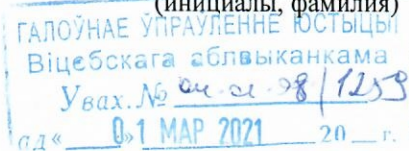 (инициалы, фамилия)
ГАЛОЎНАЕ ЎПРАЎЛЕННЕ ЮСТЫЦЫІ
Віцебскага аблвыканкама
Увах. № 98/1259
ад « 0» 1 МАР 2021 20 г.